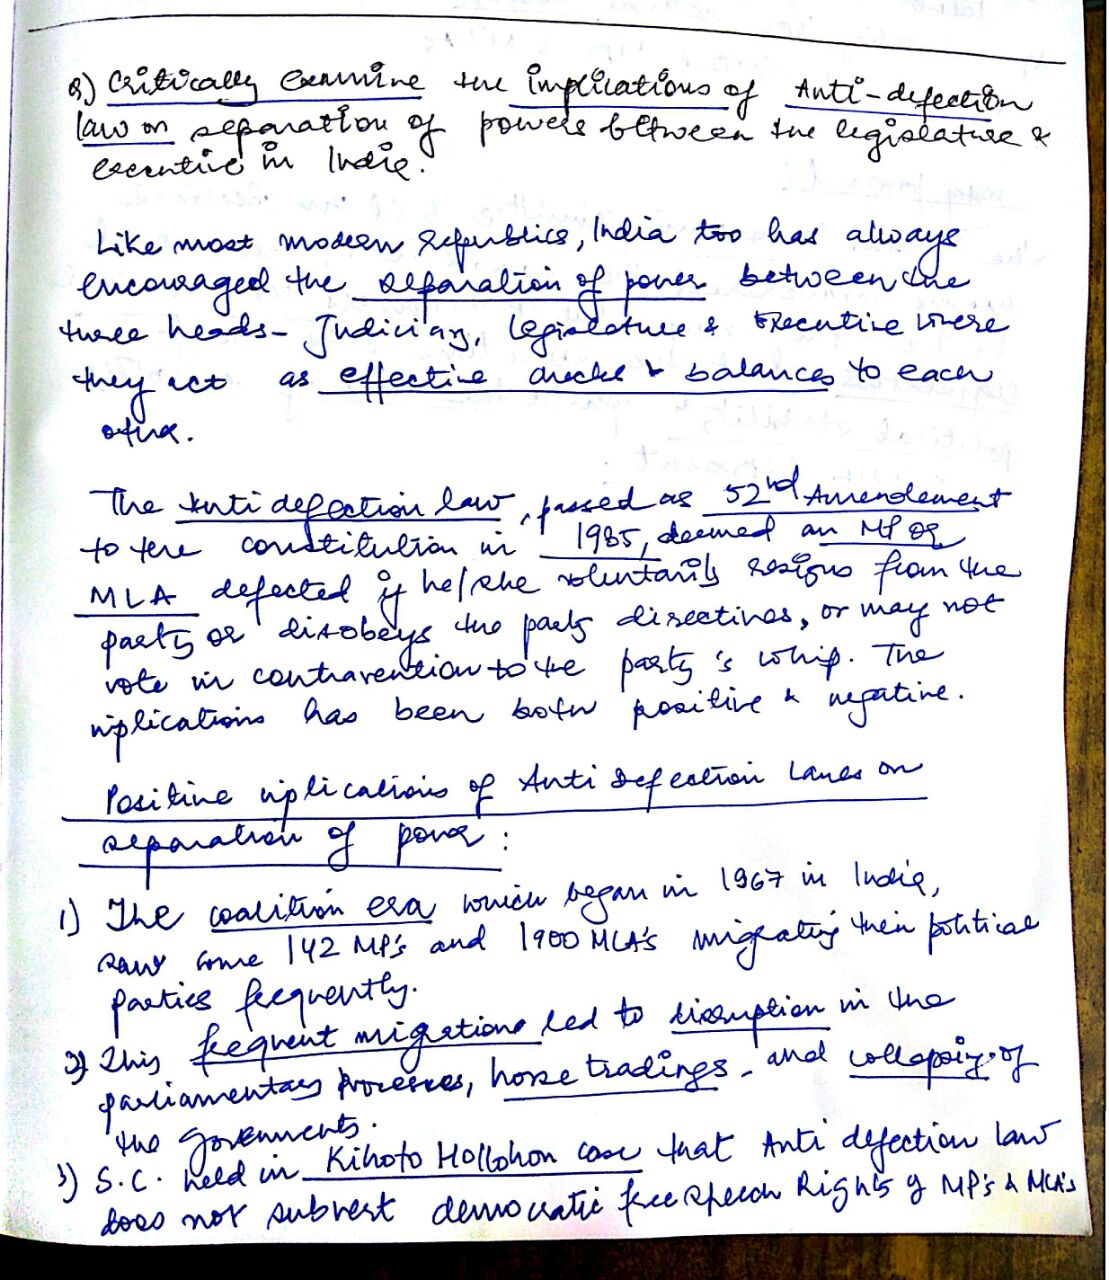 Q) Critically examine the implications of Anti-defection
law on separation of powers between the legislature &
executive in India.
Like most modern republics, India too has always
encouraged the separation of power between the
three heads - Judiciary, legislature & Executive where
they act as effective checks & balances to each
other.
The Anti defection law, passed as 52nd Amendement
to the constitution in 1985, deemed an MP or
MLA defected if he/she voluntarily resigns from the
party or disobeys the party directives, or may not
vote in contravention to the party's whip. The
implications has been both positive & negative.
Positive implications of Anti defection Laws on
separation of power :
1) The coalition era which began in 1967 in India,
saw some 142 MP's and 1900 MLA's migrating their political
parties frequently.
2) This frequent migrations led to disruption in the
parliamentary processes, horse tradings, and collapsing of
the governments.
3) S.C. held in Kihoto Hollohon case that Anti defection law
does not subvert democratic free speech Rights of MP's & MLA's